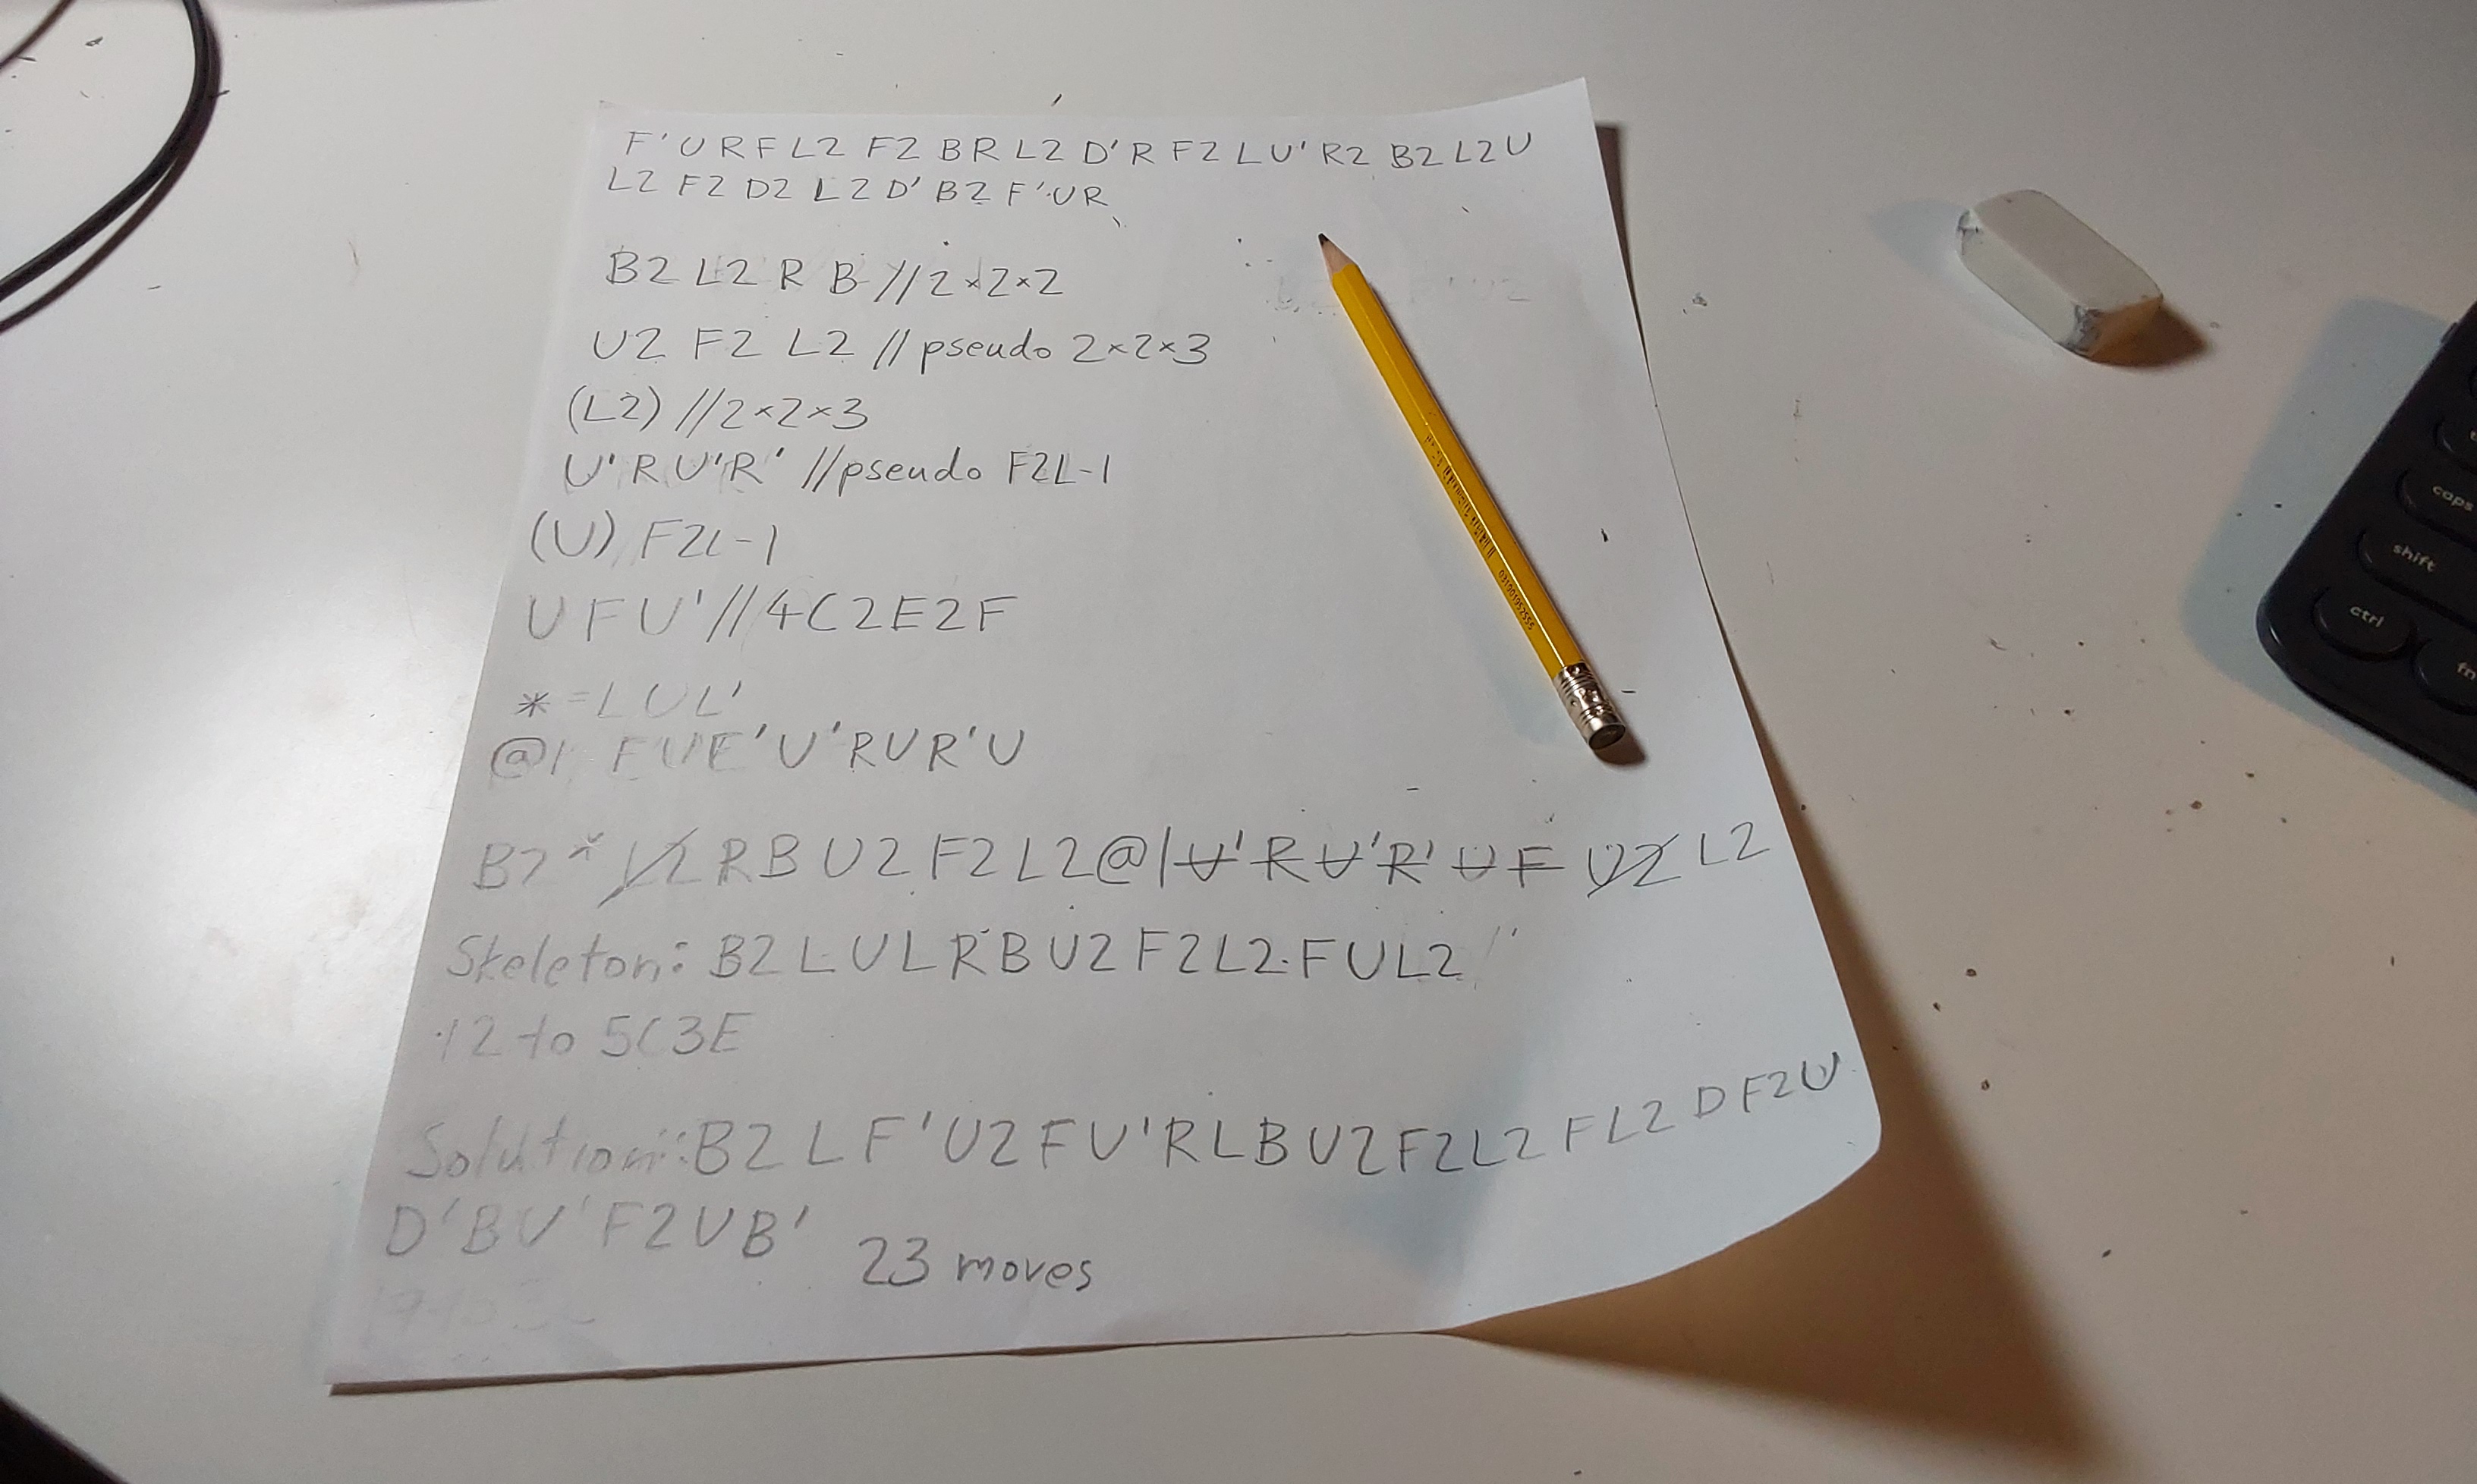 F' U R F L2 F2 B R L2 D' R F2 L U' R2 B2 L2 U
L2 F2 D2 L2 D' B2 F' U R
B2 L2 R B // 2×2×2
U2 F2 L2 // pseudo 2×2×3
(L2) // 2×2×3
U' R U' R' // pseudo F2L-1
(U) F2L-1
U F U' // 4C2E2F
* = L U L'
@1 F U F' U' R U R' U
B2 * L2 R B U2 F2 L2 @1 U' R U' R' U F U2 L2
Skeleton: B2 L U L R B U2 F2 L2 F U L2
12 to 5C3E
Solution: B2 L F' U2 F U' R L B U2 F2 L2 F L2 D F2 U
D' B U' F2 U B'
23 moves
caps
shift
ctrl
fn